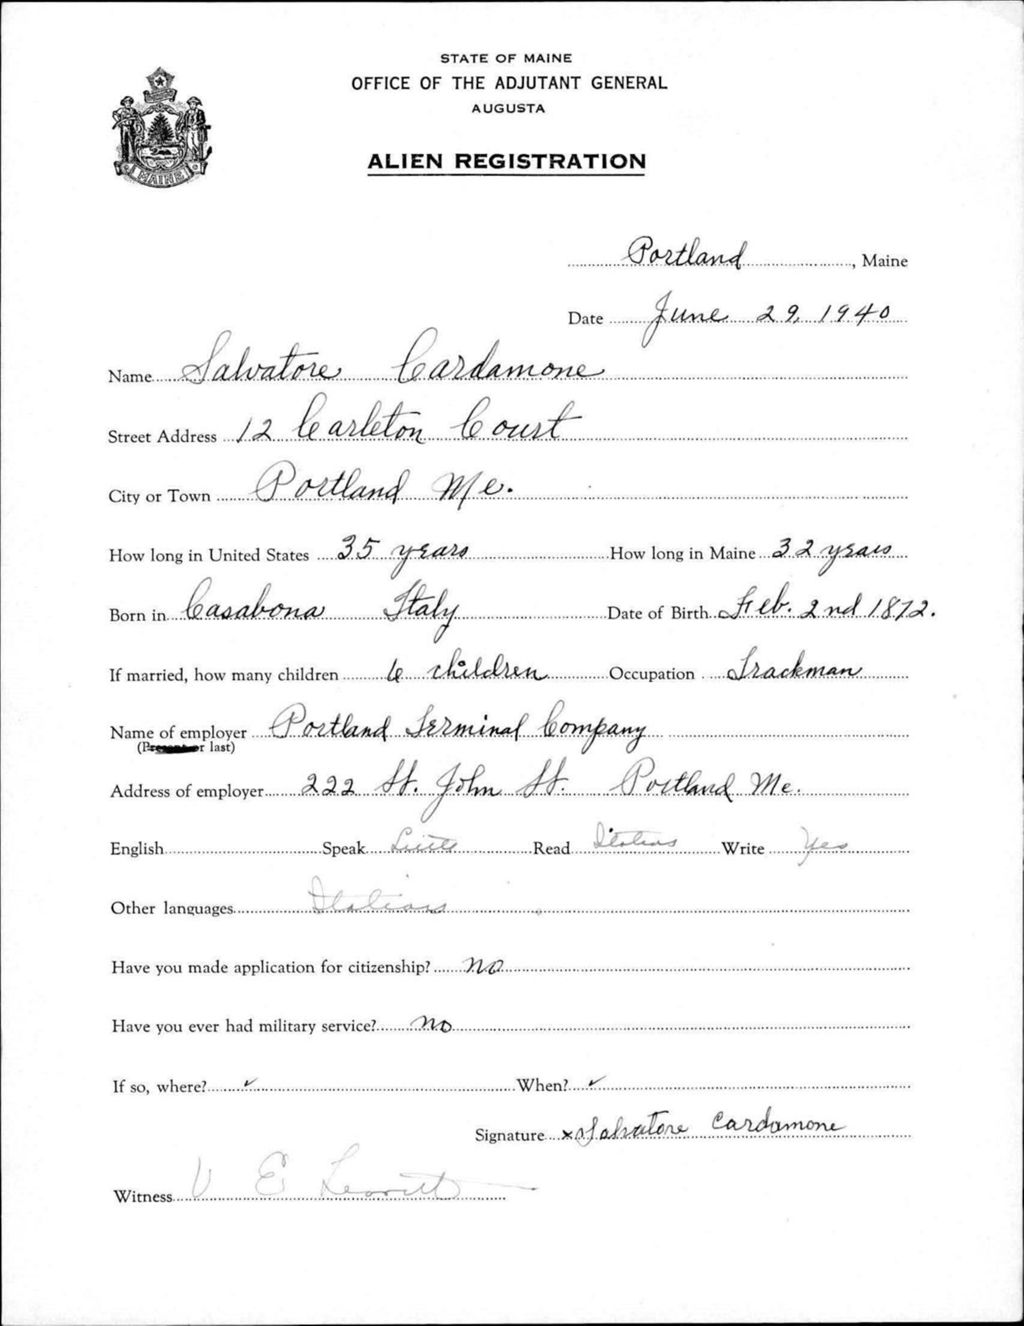 STATE OF MAINE
OFFICE OF THE ADJUTANT GENERAL
AUGUSTA
ALIEN REGISTRATION
MAINE
Portland, Maine
Date June 29, 1940
Name Salvatore Cardamone
Street Address 12 Carleton Court
City or Town Portland Me.
How long in United States 35 years How long in Maine 32 years
Born in Casabona Italy Date of Birth Feb. 2nd 1872.
If married, how many children 6 children Occupation Trackman
Name of employer Portland Terminal Company
(Present or last)
Address of employer 222 St. John St. Portland Me.
English Speak Little Read Italian Write Yes
Other languages Italian
Have you made application for citizenship? No
Have you ever had military service? No
If so, where? ✓ When? ✓
Signature x Salvatore Cardamone
Witness V E Leavitt